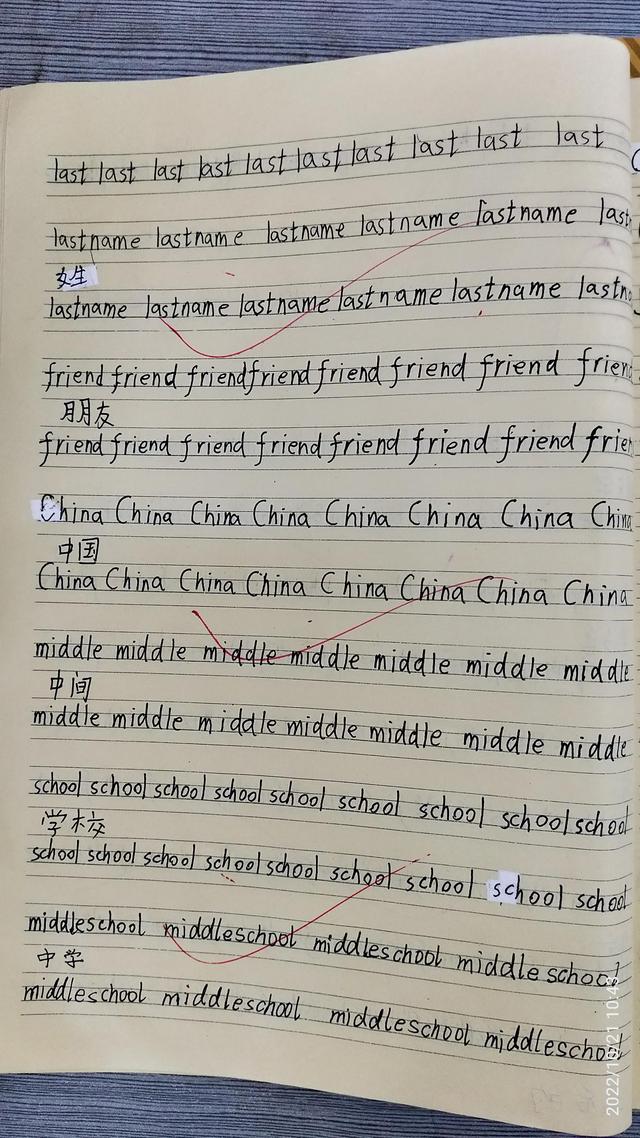 last last last last last last last last last last
lastname lastname lastname lastname lastname last
女生
lastname lastname lastname lastname lastname lastn
friend friend friend friend friend friend friend frien
朋友
friend friend friend friend friend friend friend frien
China China China China China China China China
中国
China China China China China China China China
middle middle middle middle middle middle middle
中间
middle middle middle middle middle middle middle
school school school school school school school school school
学校
school school school school school school school school school
middleschool middleschool middleschool middleschool
中学
middleschool middleschool middleschool middleschool
2022/10/21 10:43